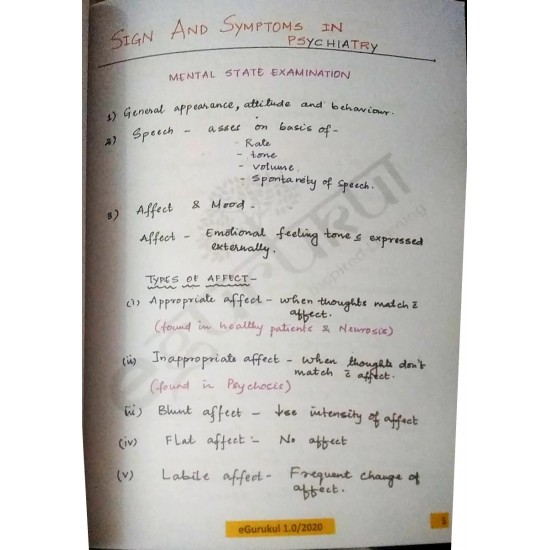 SIGN AND SYMPTOMS IN
PSYCHIATRY
MENTAL STATE EXAMINATION
1) General appearance, attitude and behaviour.
2) Speech - asses on basis of -
- Rate
- tone
- volume
- Spontanity of speech.
3) Affect & Mood -
Affect - Emotional feeling tone is expressed
externally.
TYPES OF AFFECT -
(i) Appropriate affect - when thoughts match c̄
affect.
(found in healthy patients & Neurosis)
(ii) Inappropriate affect - when thoughts don't
match c̄ affect.
(found in Psychosis)
iii) Blunt affect - ↓se intensity of affect
(iv) Flat affect :- No affect
(v) Labile affect - Frequent change of
affect.
eGurukul 1.0/2020
5